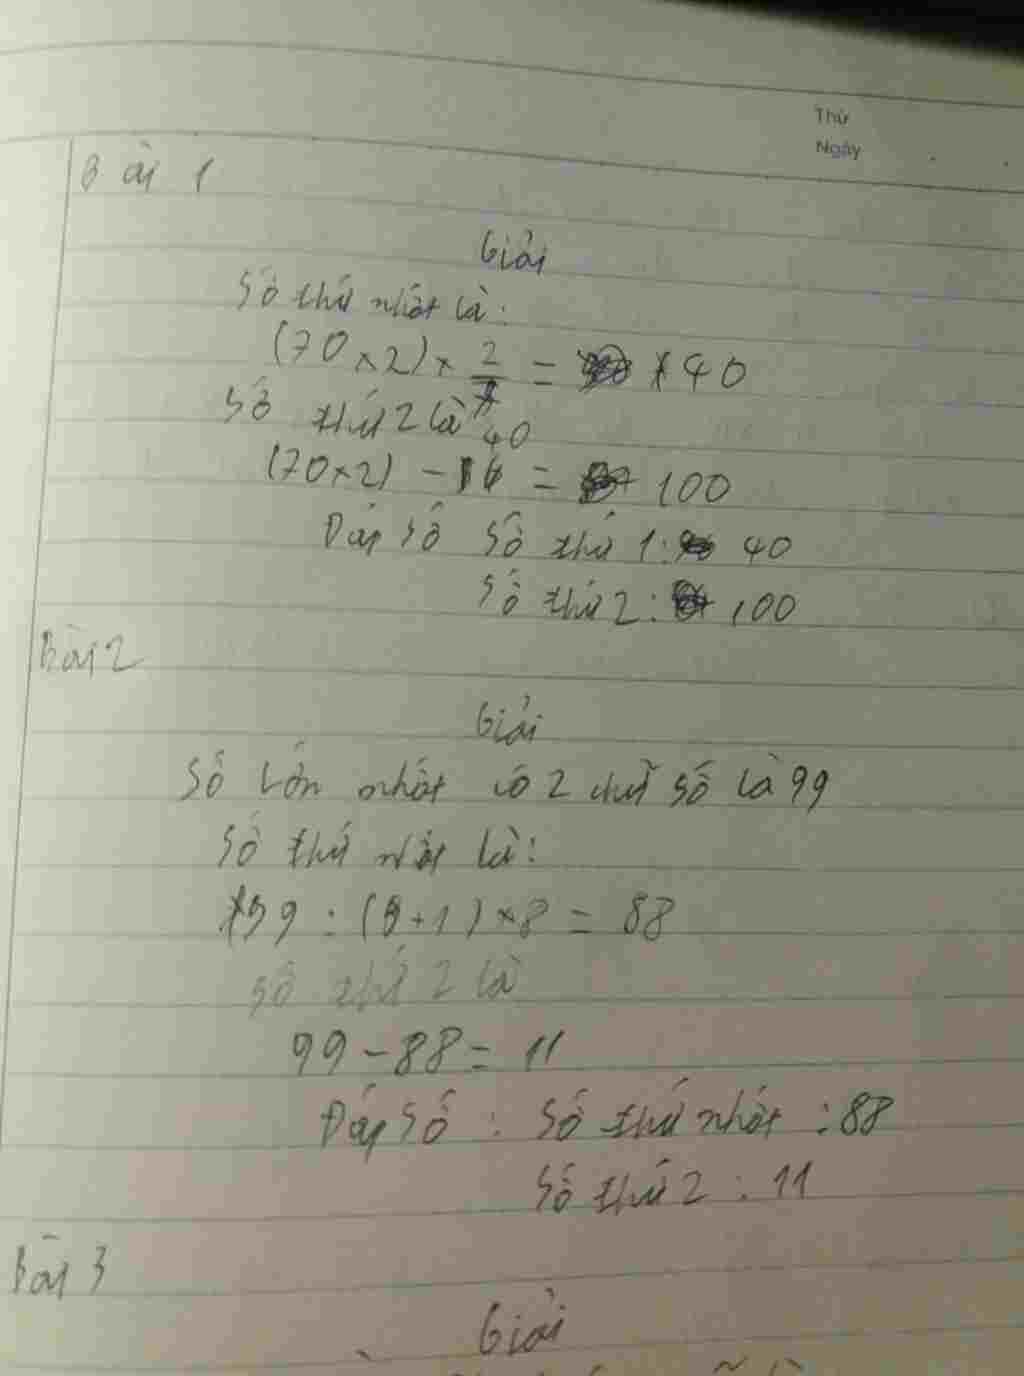 Thứ
Ngày
Bài 1
Giải
Số thứ nhất là:
(70 × 2) × 2/7 = 40
Số thứ 2 là
40
(70×2) - = 100
Đáp số Số thứ 1: 40
Số thứ 2: 100
Bài 2
Giải
Số lớn nhất có 2 chữ số là 99
Số thứ nhất là:
99 : (8+1) × 8 = 88
Số thứ 2 là
99 - 88 = 11
Đáp số : Số thứ nhất : 88
Số thứ 2 : 11
Bài 3
Giải